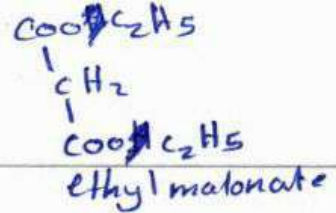 COOC2H5
CH2
COOC2H5
ethyl malonate